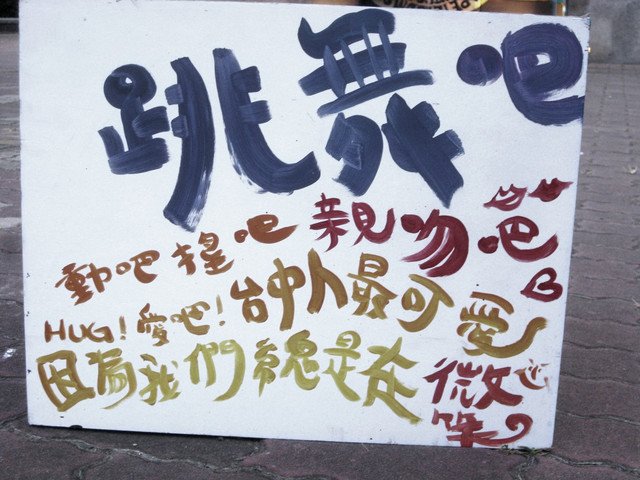 跳舞吧
動吧撞吧 親吻吧
HUG!愛吧! 台中人最可愛
因為我們總是在微笑